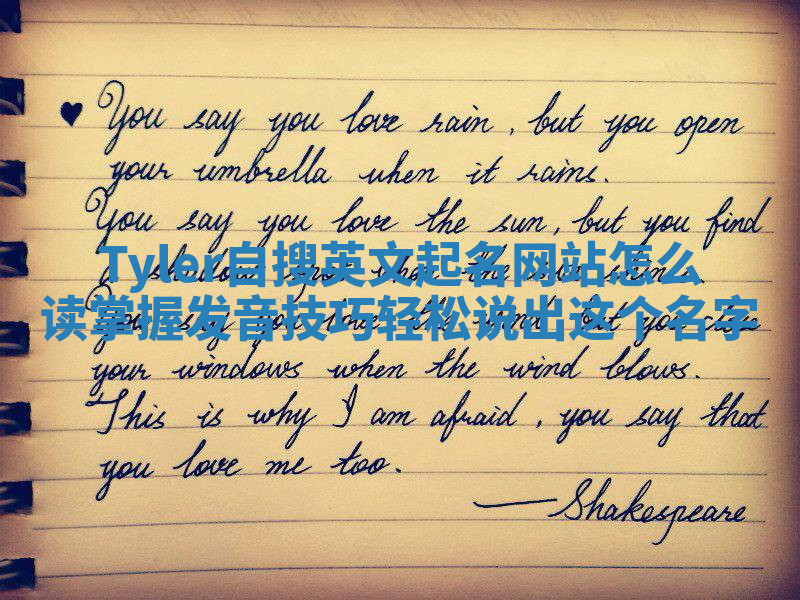 ♥ You say you love rain, but you open
your umbrella when it rains.
You say you love the sun, but you find
Tyler自搜英文起名网站怎么
读掌握发音技巧轻松说出这个名字
your windows when the wind blows.
This is why I am afraid, you say that
you love me too.
—Shakespeare